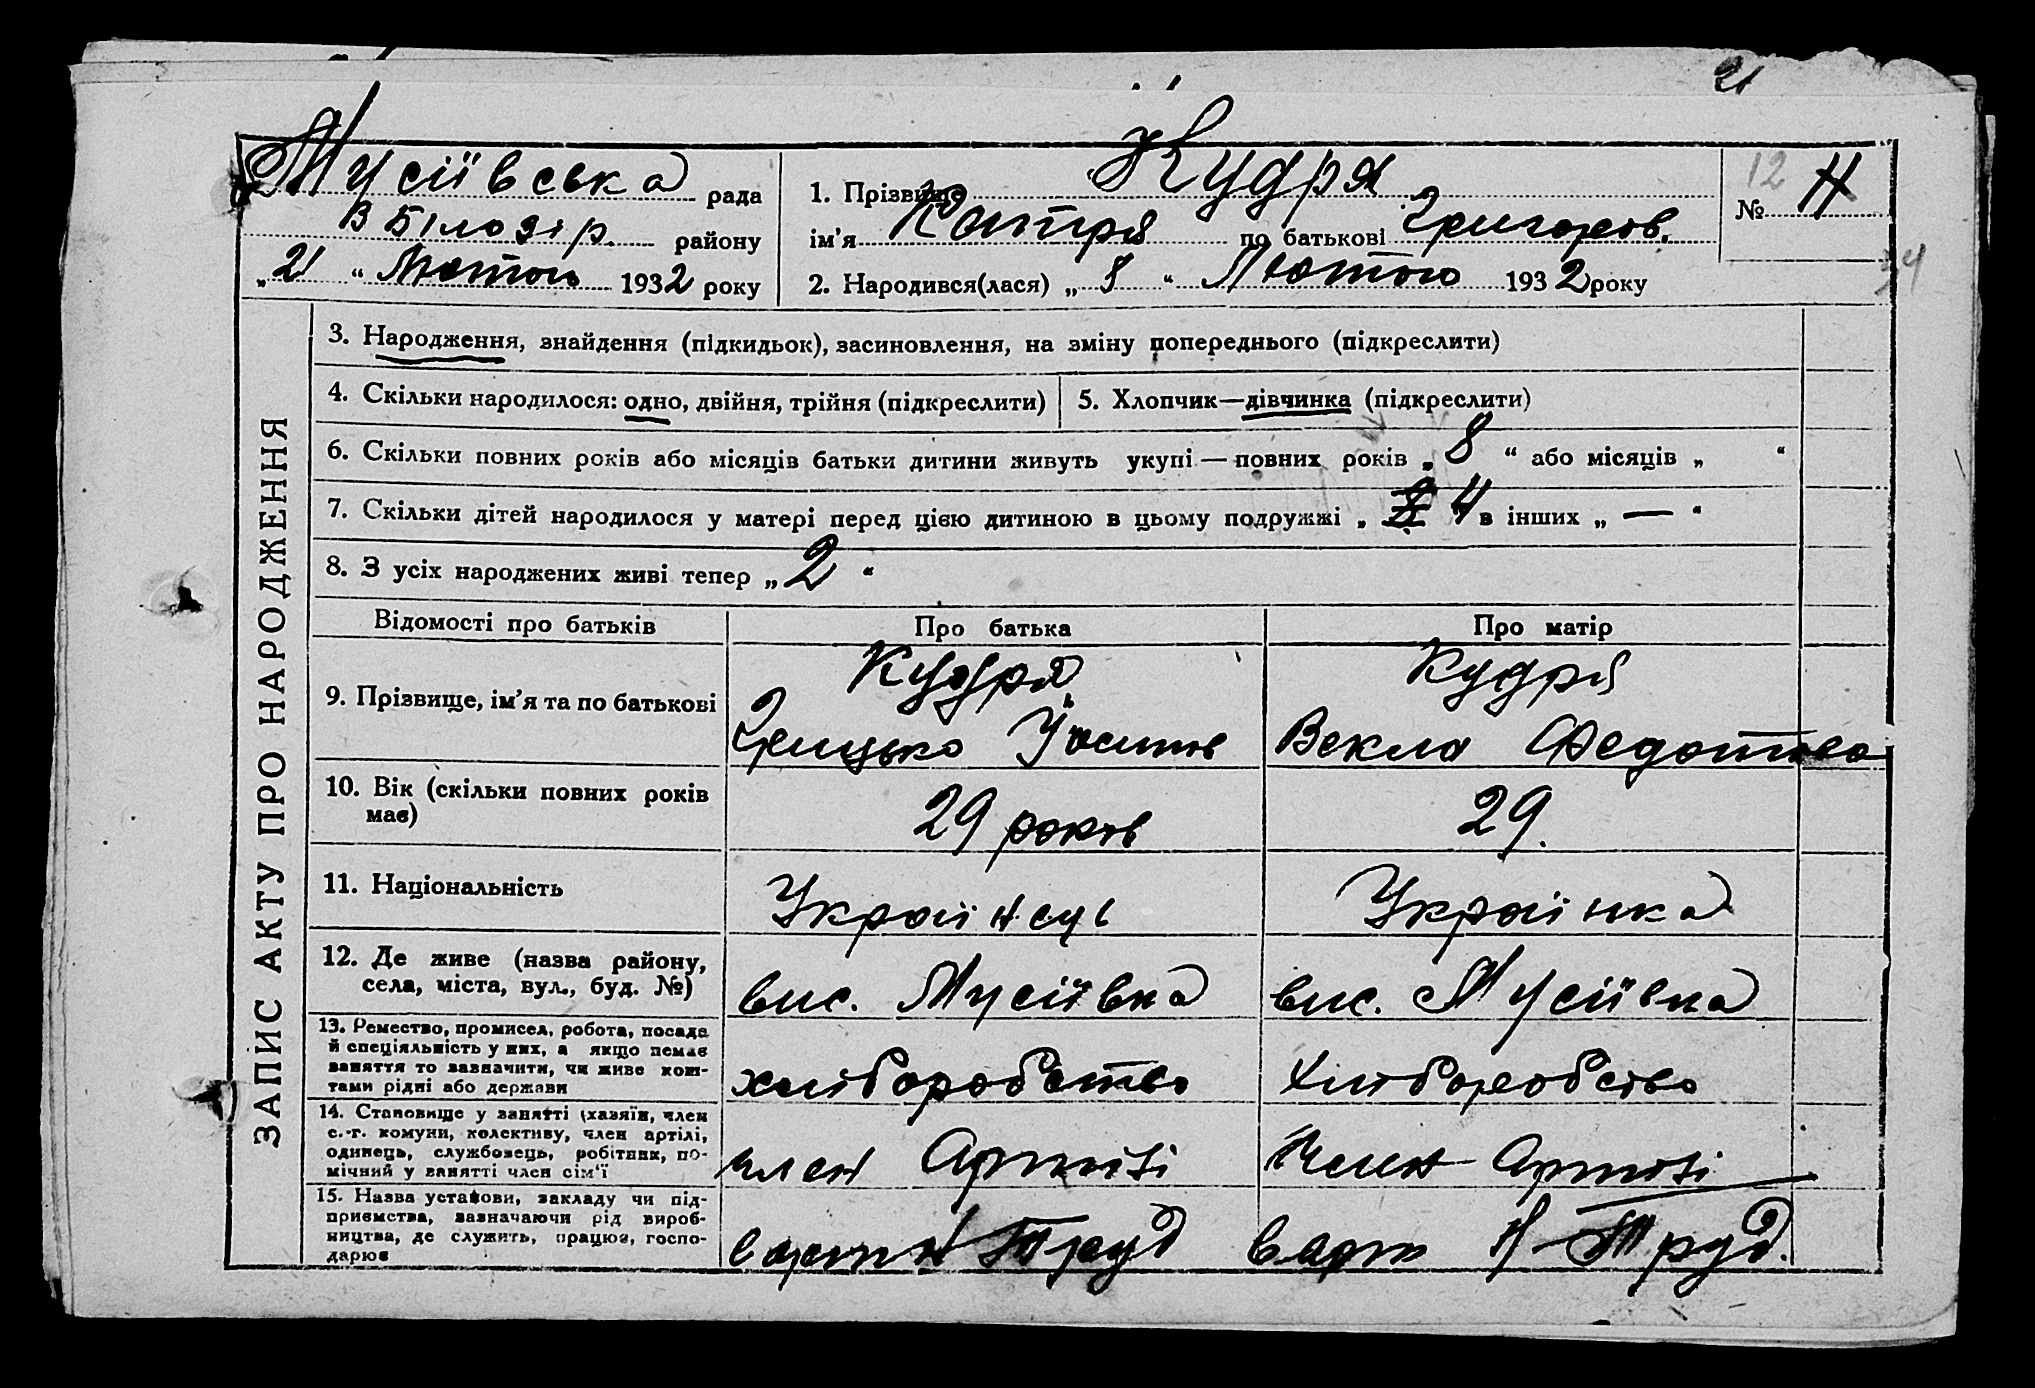 21
Мусіївська рада
В Білозір. району
„21“ Лютого 1932 року
1. Прізвище Кудря
ім'я Катря по батькові Григоров.
2. Народився(лася) „8“ Лютого 1932 року
12
№ 4
34
ЗАПИС АКТУ ПРО НАРОДЖЕННЯ
3. Народження, знайдення (підкидьок), засиновлення, на зміну попереднього (підкреслити)
4. Скільки народилося: одно, двійня, трійня (підкреслити)
5. Хлопчик—дівчинка (підкреслити)
6. Скільки повних років або місяців батьки дитини живуть укупі — повних років „8“ або місяців „ “
7. Скільки дітей народилося у матері перед цією дитиною в цьому подружжі „ 4 в інших „ — “
8. З усіх народжених живі тепер „2“
Відомості про батьків
Про батька
Про матір
9. Прізвище, ім'я та по батькові
Кудря
Грицько Йосипов
Кудря
Векла Федотова
10. Вік (скільки повних років
має)
29 років
29.
11. Національність
Українець
Українка
12. Де живе (назва району,
села, міста, вул., буд. №)
вис. Мусіївка
вис. Мусіївка
13. Ремество, промисел, робота, посада
й спеціяльність у них, а якщо немає
заняття то зазначити, чи живе кош-
тами рідні або держави
хліборобство
Хліборобство
14. Становище у занятті (хазяїн, член
с.-г. комуни, колективу, член артілі,
одинець, службовець, робітник, по-
мічний у занятті член сім'ї
член Артілі
Член Артілі
15. Назва установи, закладу чи під-
приємства, зазначаючи рід вироб-
ництва, де служить, працює, госпо-
дарює
в арт Н Труд
в арт Н-Труд.